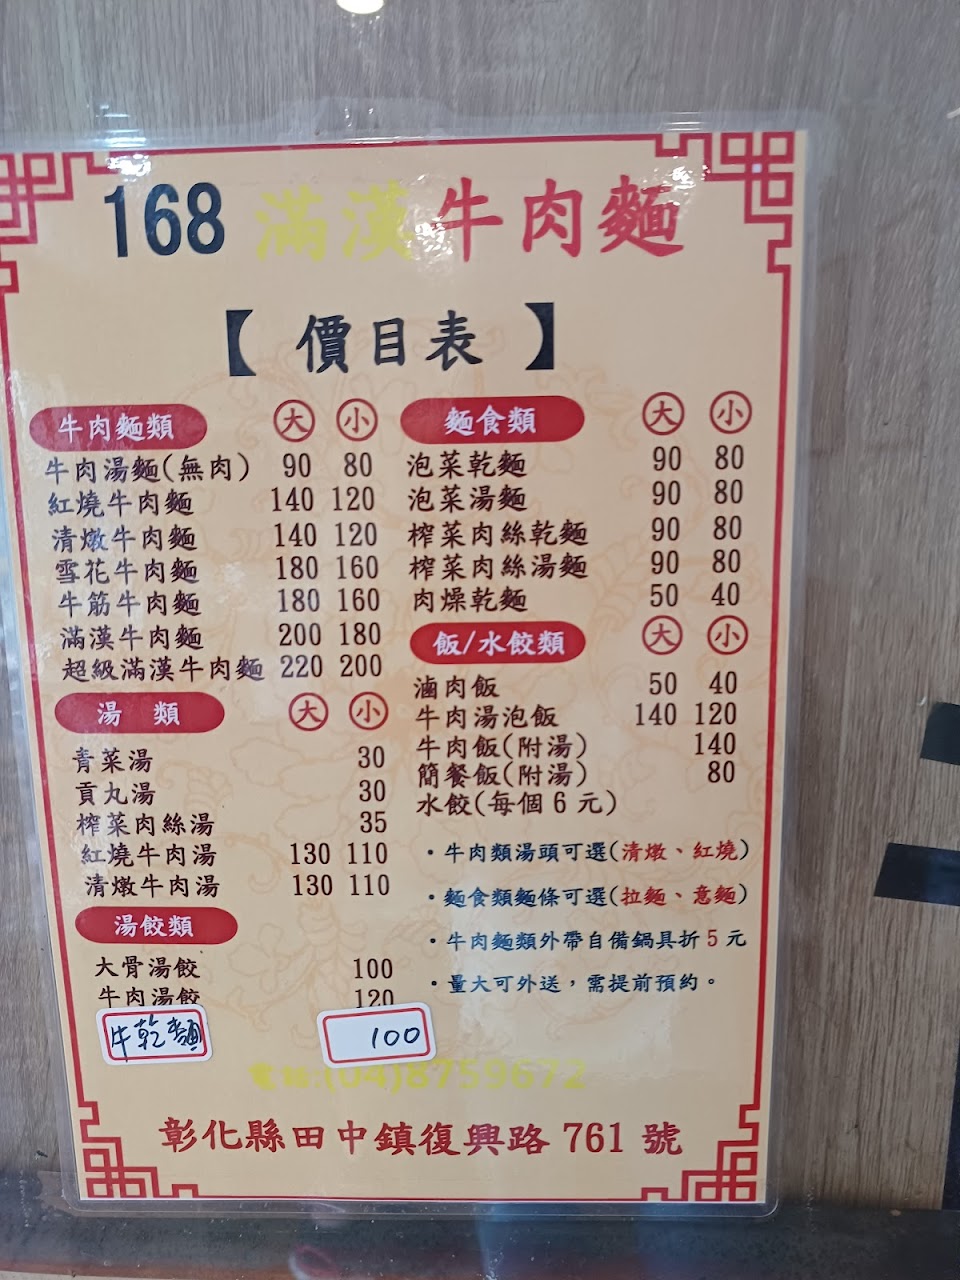 168 滿漢牛肉麵
【 價目表 】
牛肉麵類 大 小
牛肉湯麵(無肉) 90 80
紅燒牛肉麵 140 120
清燉牛肉麵 140 120
雪花牛肉麵 180 160
牛筋牛肉麵 180 160
滿漢牛肉麵 200 180
超級滿漢牛肉麵 220 200
湯 類 大 小
青菜湯 30
貢丸湯 30
榨菜肉絲湯 35
紅燒牛肉湯 130 110
清燉牛肉湯 130 110
湯餃類
大骨湯餃 100
牛肉湯餃 120
牛乾麵 100
麵食類 大 小
泡菜乾麵 90 80
泡菜湯麵 90 80
榨菜肉絲乾麵 90 80
榨菜肉絲湯麵 90 80
肉燥乾麵 50 40
飯/水餃類 大 小
滷肉飯 50 40
牛肉湯泡飯 140 120
牛肉飯(附湯) 140
簡餐飯(附湯) 80
水餃(每個6元)
·牛肉類湯頭可選(清燉、紅燒)
·麵食類麵條可選(拉麵、意麵)
·牛肉麵類外帶自備鍋具折5元
·量大可外送，需提前預約。
電話:(04)8759672
彰化縣田中鎮復興路761號